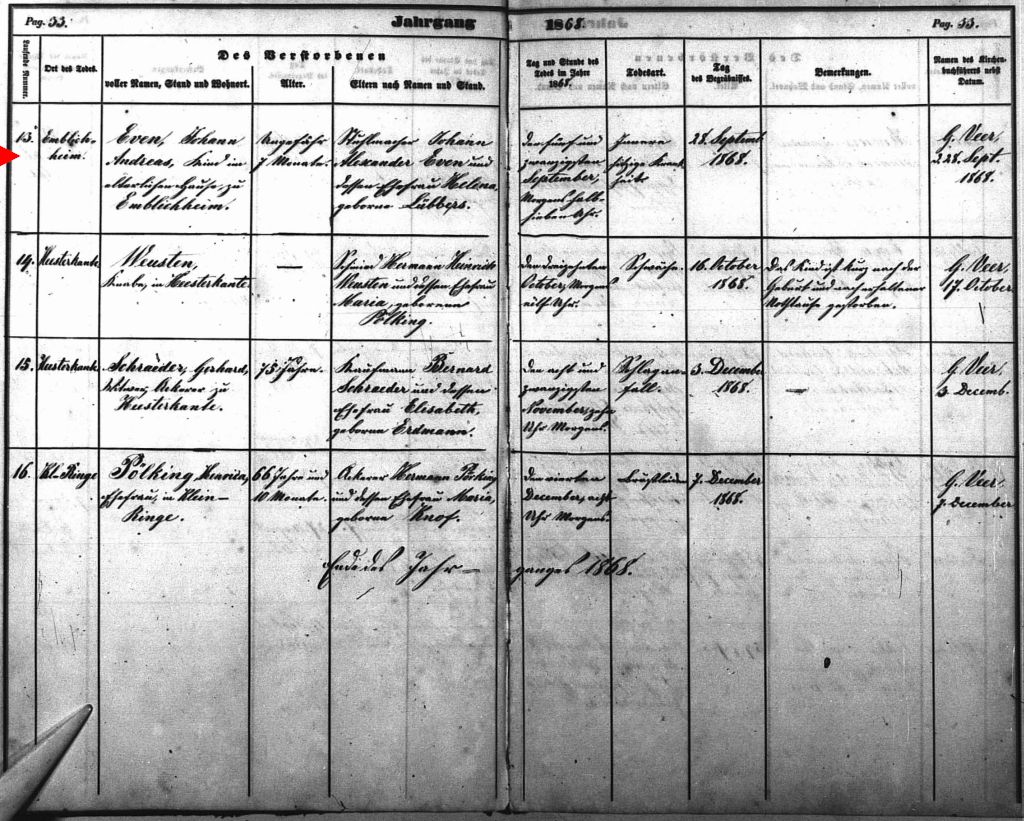 Pag. 33. Jahrgang 1868. Pag. 33.
Laufende Nummer.
Ort des Todes.
Des Verstorbenen
voller Namen, Stand und Wohnort.
Alter.
Eltern nach Namen und Stand.
Tag und Stunde des
Todes im Jahr
1868.
Todesart.
Tag
des Begräbnisses.
Bemerkungen.
Namen des Kirchen-
buchführers nebst
Datum.
13.
Emblich-
heim.
Even, Johann
Andreas, Kind im
elterlichen Hause, zu
Emblichheim.
Ungefähr
7 Monate.
Stuhlmacher Johann
Alexander Even und
dessen Ehefrau Helena,
geborne Lübbers.
den fünf und
zwanzigsten
September,
Morgens halb
sieben Uhr.
Innere
hitzige Krank-
heit
28. Septemb
1868.
G. Veer,
28. Sept.
1868.
14.
Heesterkante
Weusten,
Knabe, in Heesterkante.
—
Schmied Hermann Heinrich
Weusten und dessen Ehefrau
Maria, geborene
Pölking.
Den dreizehnten
October, Morgens
eilf Uhr.
Schwäche.
16. October
1868.
Das Kind ist kurz nach der
Geburt und nach erhaltener
Nothtaufe gestorben.
G. Veer,
17. October
15.
Heesterkante
Schraeder, Gerhard,
Witwer, Ackerer zu
Heesterkante.
75 Jahre.
Kaufmann Bernard
Schraeder und dessen
Ehefrau Elisabeth,
geborne Erdmann.
Den acht und
zwanzigsten
November, zehn
Uhr Morgens.
Schlagan-
fall.
3. Decemb.
1868.
—
G. Veer
3. Decemb.
16.
Kl. Ringe
Pölking,
Ehefrau, in Klein-
Ringe.
66 Jahre und
10 Monate.
Ackerer Hermann Pölking
und dessen Ehefrau Maria,
geborne Knof.
Den vierten
December, acht
Uhr Morgens.
Brustleiden
7. December
1868.
G. Veer,
7. December
Ende des Jahr- ganges 1868.